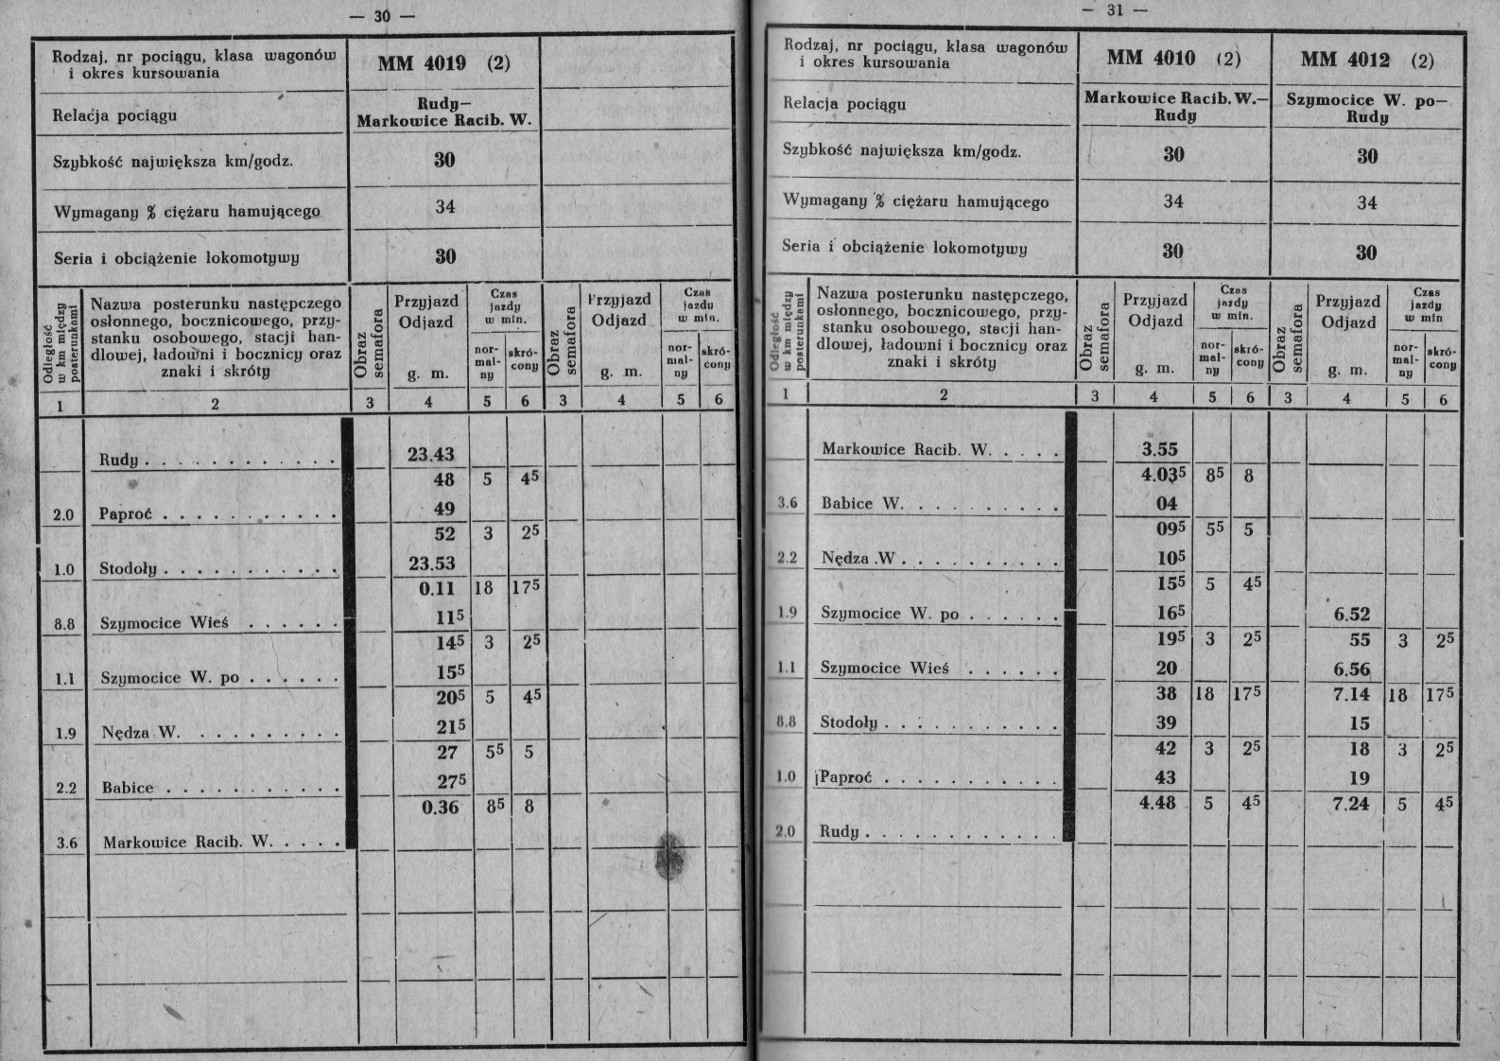 — 30 —
Rodzaj, nr pociągu, klasa wagonów
i okres kursowania
MM 4019 (2)
Relacja pociągu
Rudy—
Markowice Racib. W.
Szybkość największa km/godz.
30
Wymagany % ciężaru hamującego
34
Seria i obciążenie lokomotywy
30
Odległość
w km między
posterunkami
Nazwa posterunku następczego
osłonnego, bocznicowego, przy-
stanku osobowego, stacji han-
dlowej, ładowni i bocznicy oraz
znaki i skróty
Obraz
semafora
Przyjazd
Odjazd
g. m.
Czas
jazdy
w min.
nor-
mal-
ny
skró-
cony
Obraz
semafora
Przyjazd
Odjazd
g. m.
Czas
jazdy
w min.
nor-
mal-
ny
skró-
cony
1 2 3 4 5 6 3 4 5 6
Rudy . . . . . . . . . . . . 23.43
48 5 4⁵
2.0 Paproć . . . . . . . . . . . 49
52 3 2⁵
1.0 Stodoły . . . . . . . . . . . 23.53
0.11 18 17⁵
8.8 Szymocice Wieś . . . . . . 11⁵
14⁵ 3 2⁵
1.1 Szymocice W. po . . . . . . 15⁵
20⁵ 5 4⁵
1.9 Nędza W. . . . . . . . . . 21⁵
27 5⁵ 5
2.2 Babice . . . . . . . . . . . 27⁵
0.36 8⁵ 8
3.6 Markowice Racib. W. . . . .
— 31 —
Rodzaj, nr pociągu, klasa wagonów
i okres kursowania
MM 4010 (2)
MM 4012 (2)
Relacja pociągu
Markowice Racib. W.—
Rudy
Szymocice W. po—
Rudy
Szybkość największa km/godz.
30 30
Wymagany % ciężaru hamującego
34 34
Seria i obciążenie lokomotywy
30 30
Odległość
w km między
posterunkami
Nazwa posterunku następczego,
osłonnego, bocznicowego, przy-
stanku osobowego, stacji han-
dlowej, ładowni i bocznicy oraz
znaki i skróty
Obraz
semafora
Przyjazd
Odjazd
g. m.
Czas
jazdy
w min.
nor-
mal-
ny
skró-
cony
Obraz
semafora
Przyjazd
Odjazd
g. m.
Czas
jazdy
w min
nor-
mal-
ny
skró-
cony
1 2 3 4 5 6 3 4 5 6
Markowice Racib. W. . . . . 3.55
4.03⁵ 8⁵ 8
3.6 Babice W. . . . . . . . . . 04
09⁵ 5⁵ 5
2.2 Nędza .W . . . . . . . . . . 10⁵
15⁵ 5 4⁵
1.9 Szymocice W. po . . . . . . 16⁵ 6.52
19⁵ 3 2⁵ 55 3 2⁵
1.1 Szymocice Wieś . . . . . . 20 6.56
38 18 17⁵ 7.14 18 17⁵
8.8 Stodoły . . . . . . . . . . . 39 15
42 3 2⁵ 18 3 2⁵
1.0 Paproć . . . . . . . . . . . 43 19
4.48 5 4⁵ 7.24 5 4⁵
2.0 Rudy . . . . . . . . . . . .